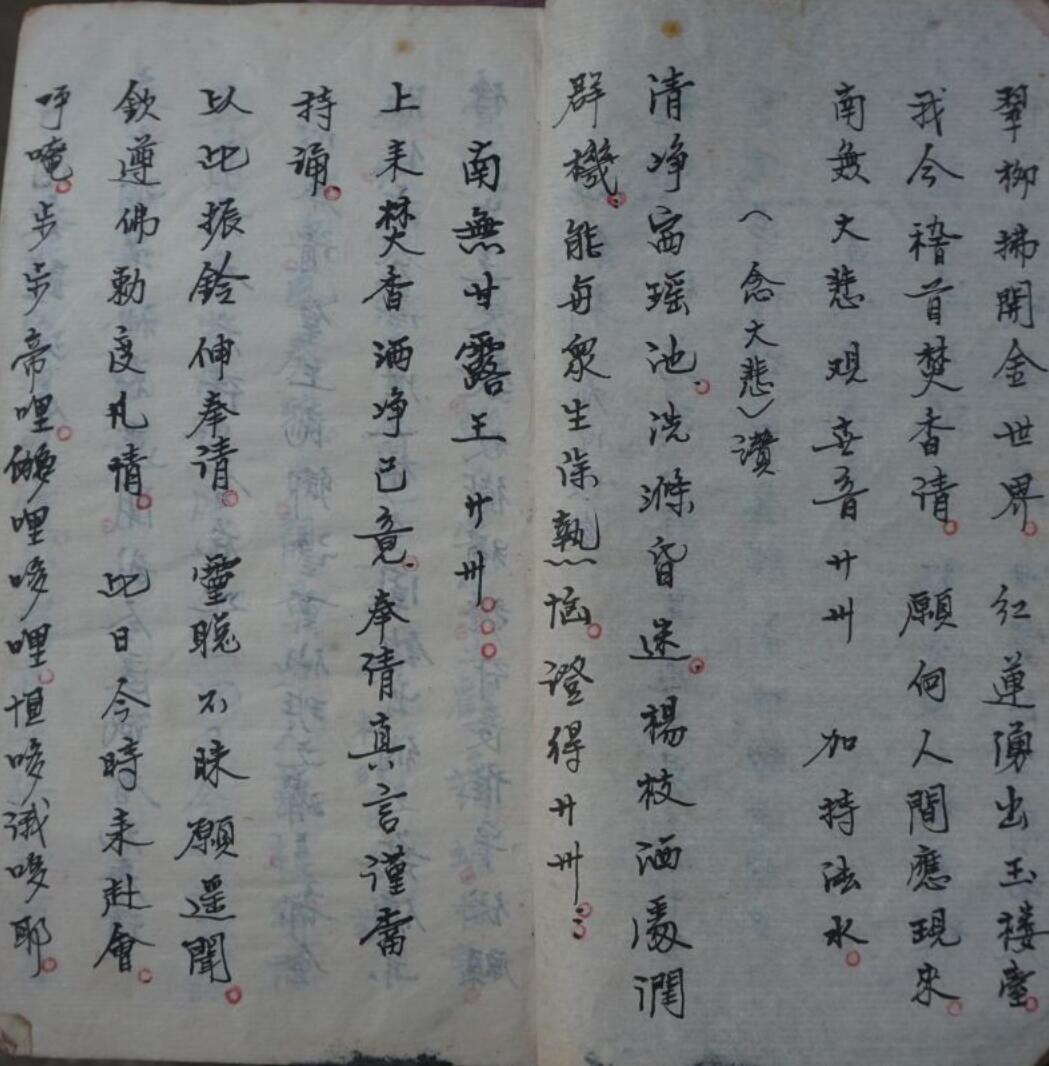 翠柳拂開金世界。紅蓮湧出玉樓臺。
我今稽首焚香请。願向人間應現來。
南無大悲观世音廿卅 加持法水。
（念大悲）讚
清净宻瑶池。洗滌昏迷。楊枝洒處潤
群機。能每衆生除熱恼。證得廿卅：
南無甘露王廿卅。。。
上来焚香洒净已竟。奉請真言謹當
持诵。
以此振鈴伸奉请。靈聪不昧願遥聞。
欽遵佛勅度凡情。此日今時来赴會。
呼唵。步步帝哩。伽哩哆哩。怛哆诐哆耶。